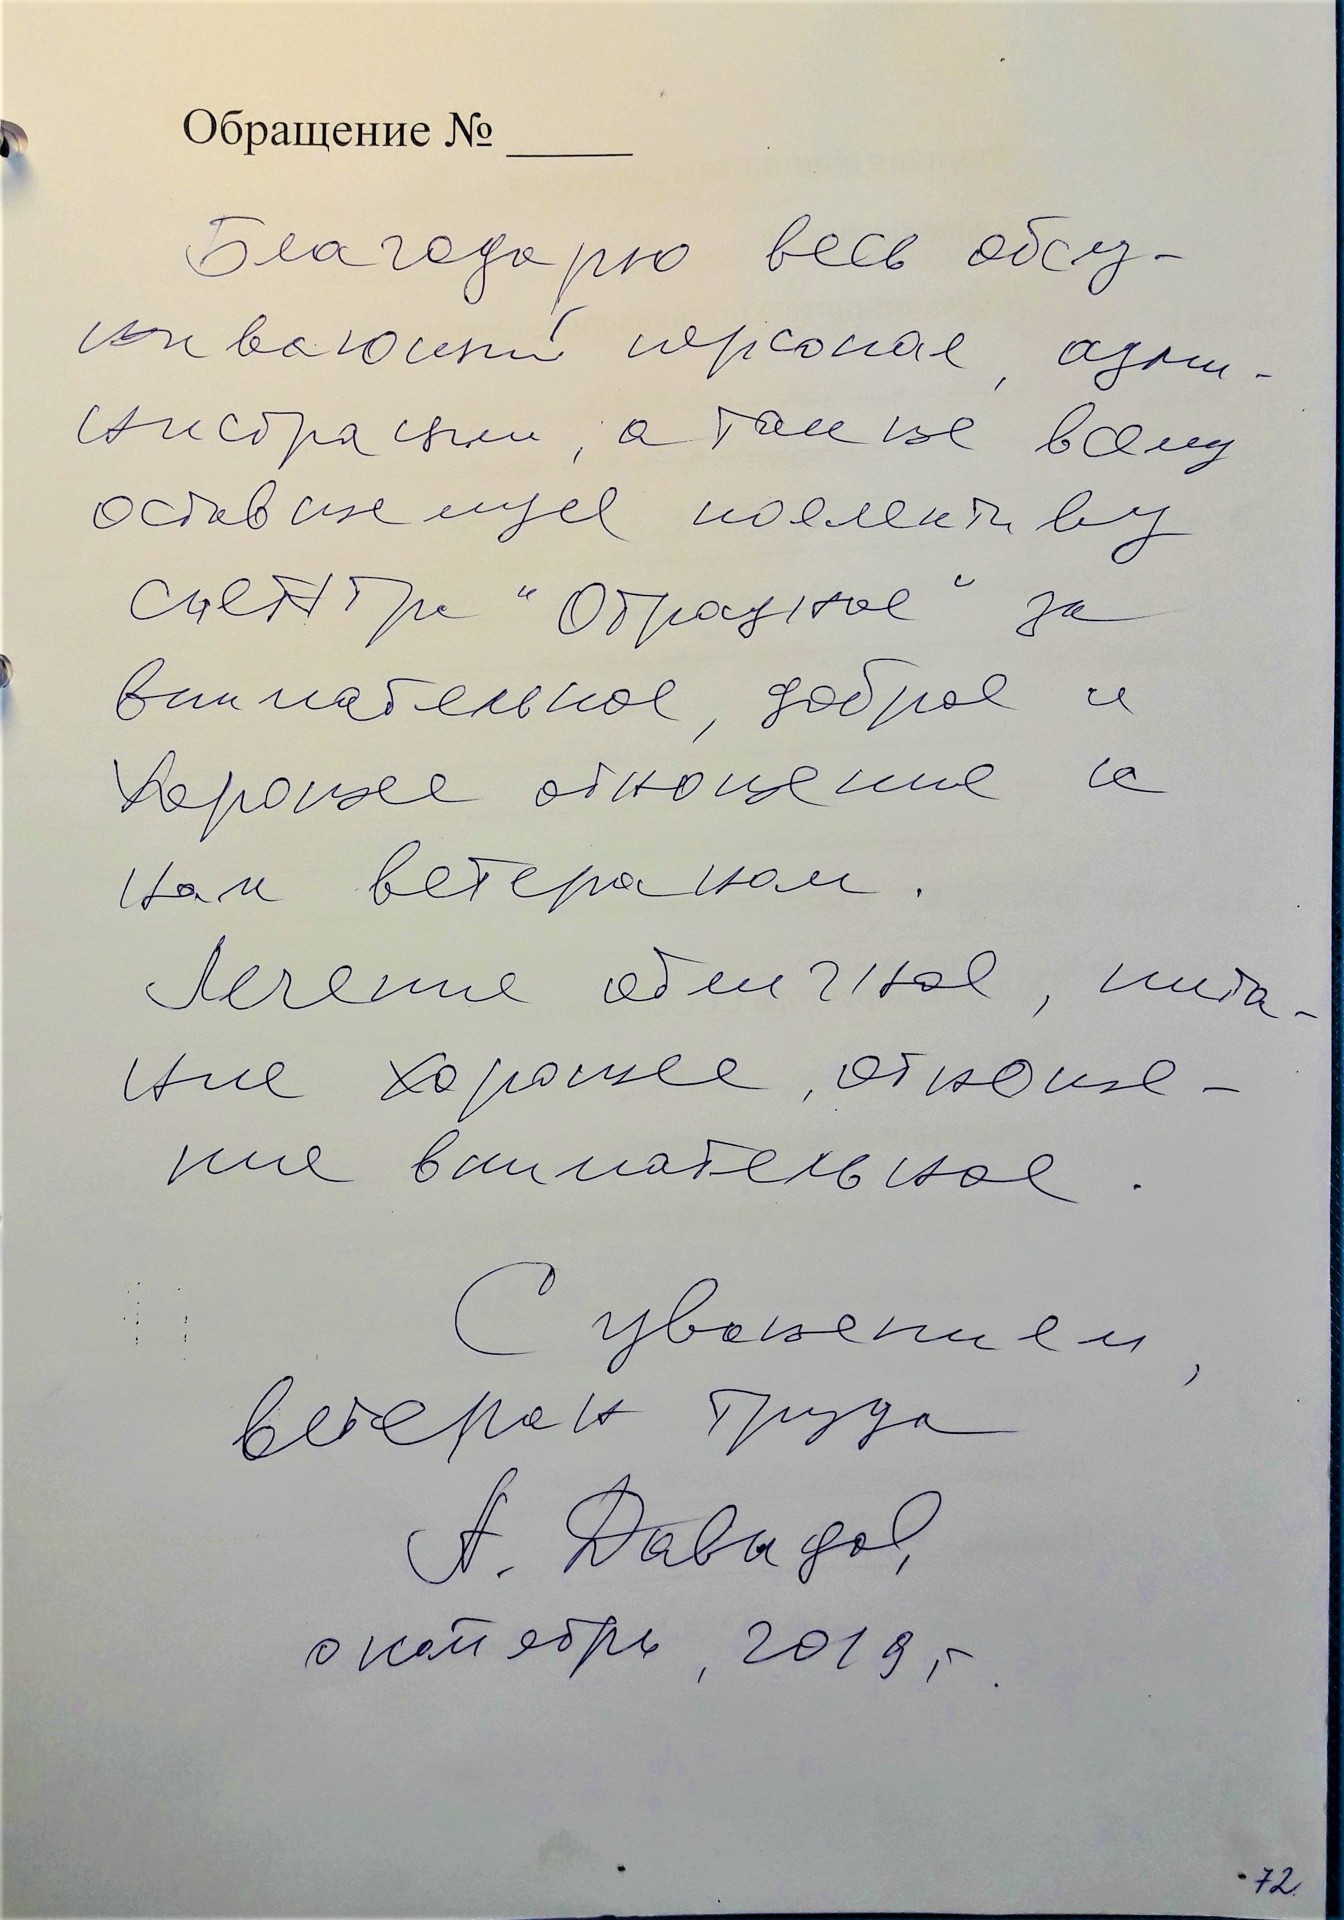 Обращение № _____
Благодарю весь обслу-
живающий персонал, адми-
нистрации, а также всему
оставшемуся коллективу
"Отрадное" за
внимательное, доброе и
хорошее отношение к
нам ветеранам.
Лечение отличное, пита-
ние хорошее, отноше-
ние внимательное.
С уважением,
ветеран труда
А. Давыдов,
октябрь, 2019 г.
72